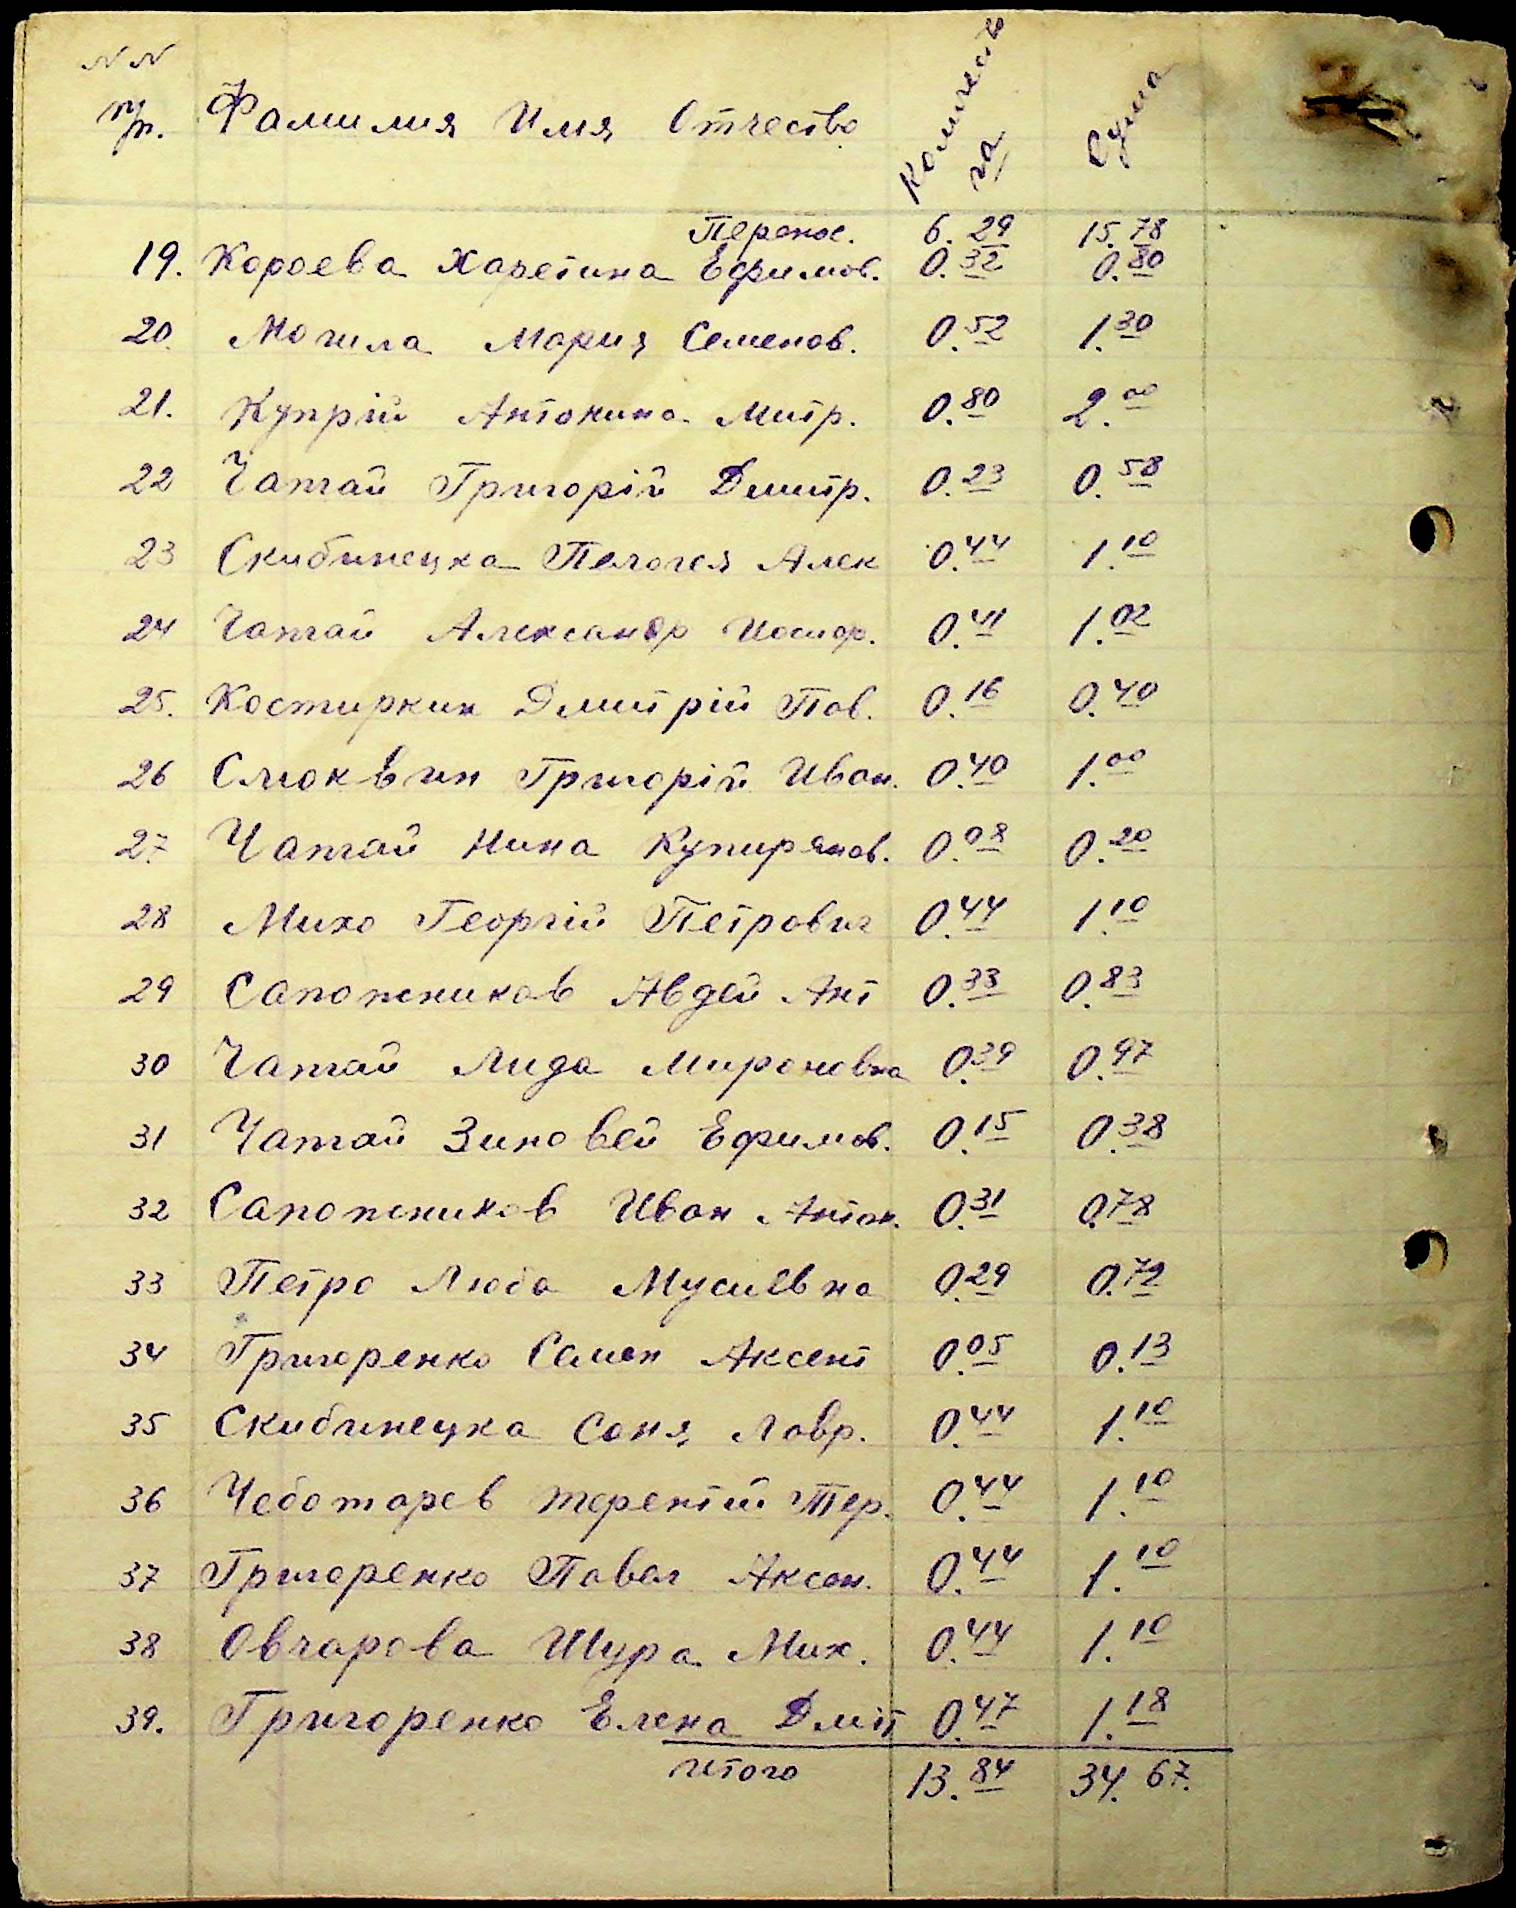 NN
пр. Фамилия Имя Отчество Количество га Сума
Перенос. 6.29 15.78
19. Короева Харетина Ефимов. 0.32 0.80
20. Могила Мария Семенов. 0.52 1.30
21. Купрій Антонина Митр. 0.80 2.00
22 Чатай Григорій Дмитр. 0.23 0.58
23 Скибинецка Пелогея Алек 0.44 1.10
24 Чатай Александр Иосиф. 0.41 1.02
25. Костиркин Дмитрій Пав. 0.16 0.40
26 Слюквин Григорій Иван. 0.40 1.00
27 Чатай Нина Купирянов. 0.08 0.20
28 Михо Георгій Петрович 0.44 1.10
29 Сапожников Авдей Ант 0.33 0.83
30 Чатай Лида Мироновна 0.39 0.97
31 Чатай Зиновей Ефимов. 0.15 0.38
32 Сапожников Иван Антон. 0.31 0.78
33 Петро Люба Мусиевна 0.29 0.72
34 Григоренко Семен Аксент 0.05 0.13
35 Скибинецка Соня Лавр. 0.44 1.10
36 Чеботарев Терентий Тер. 0.44 1.10
37 Григоренко Павел Аксен. 0.44 1.10
38 Овчарова Шура Мих. 0.44 1.10
39. Григоренко Елена Дмит 0.47 1.18
итого 13.84 34.67.